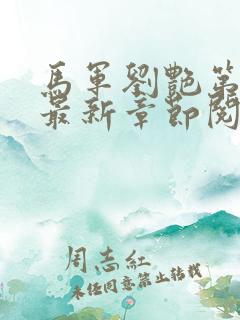 馬軍劉艷第
最新章節閱
周志紅
未經同意禁止轉載